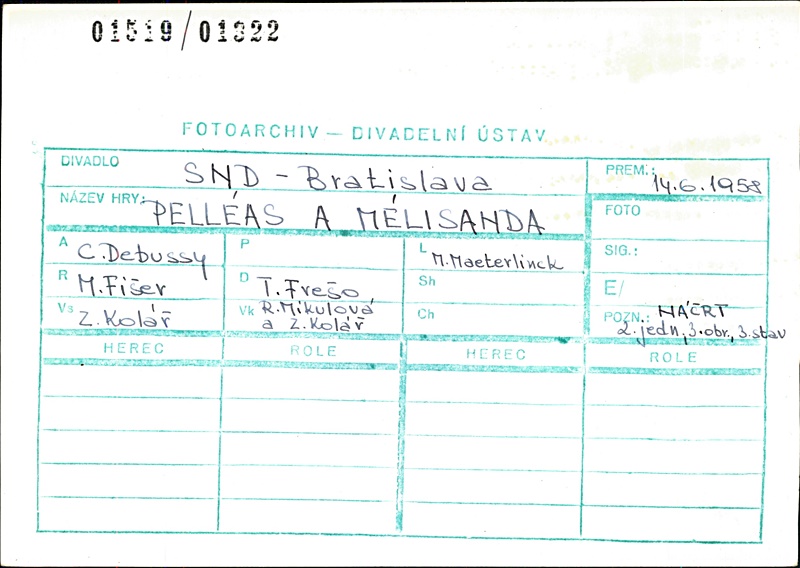 01519/01322
FOTOARCHIV — DIVADELNÍ ÚSTAV
DIVADLO SND - Bratislava PREM.: 14.6.1958
NÁZEV HRY: PELLÉAS A MÉLISANDA FOTO
A C. Debussy P L M. Maeterlinck SIG.:
R M. Fišer D T. Frešo Sh E/
Vs Z. Kolář Vk R. Mikulová Ch POZN.: NÁČRT
a Z. Kolář 2. jedn, 3. obr, 3. stav
HEREC ROLE HEREC ROLE